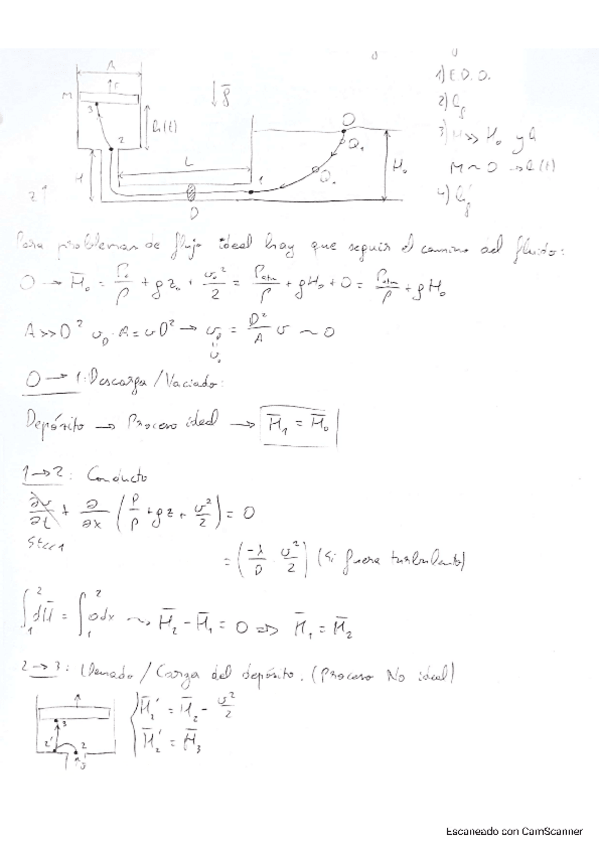 A
M
r
3
h(t)
2
L
H
z↑
D
1
ḡ
O
Q₁
Q₀
H₀
1) E.D.O.
2) h_f
3) M >> H₀ y h
M ~ 0 → h(t)
4) h_f'
Para problemas de flujo ideal hay que seguir el camino del fluido:
O → H̄₀ = P₀/ρ + g z₀ + v₀²/2 = Patm/ρ + gH₀ + 0 = Patm/ρ + gH₀
A >> D² v_D · A = v D² → v_D = D²/A v ~ 0
v₀
O → 1: Descarga / Vaciado:
Depósito → Proceso ideal → H̄₁ = H̄₀
1 → 2: Conducto
∂v/∂t + ∂/∂x (P/ρ + gz + v²/2) = 0
St<<1
= (-λ/D · v²/2) (si fuera turbulento)
∫₁² dH̄ = ∫₁² 0dx ⇝ H̄₂ - H̄₁ = 0 ⇒ H̄₁ = H̄₂
2 → 3: Llenado / Carga del depósito. (Proceso No ideal)
3
2'
2
H̄₂' = H̄₂ - v²/2
H̄₂' = H̄₃
Escaneado con CamScanner